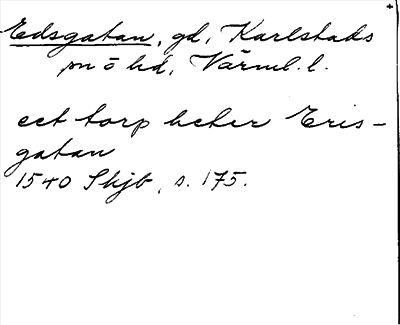 Edsgatan, gd, Karlstads
sn o hd, Värml. l.
eet torp heter Eris-
gatan
1540 Skjb, s. 175.